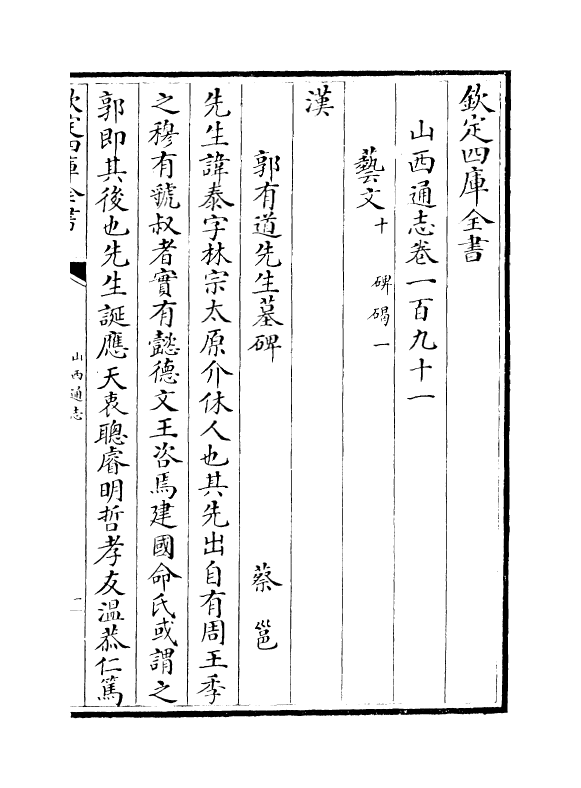 欽定四庫全書
山西通志卷一百九十一
藝文十 碑碣一
漢
郭有道先生墓碑 蔡邕
先生諱泰字林宗太原介休人也其先出自有周王季
之穆有虢叔者實有懿德文王咨焉建國命氏或謂之
郭即其後也先生誕應天衷聰睿明哲孝友温恭仁篤
欽定四庫全書
山西通志